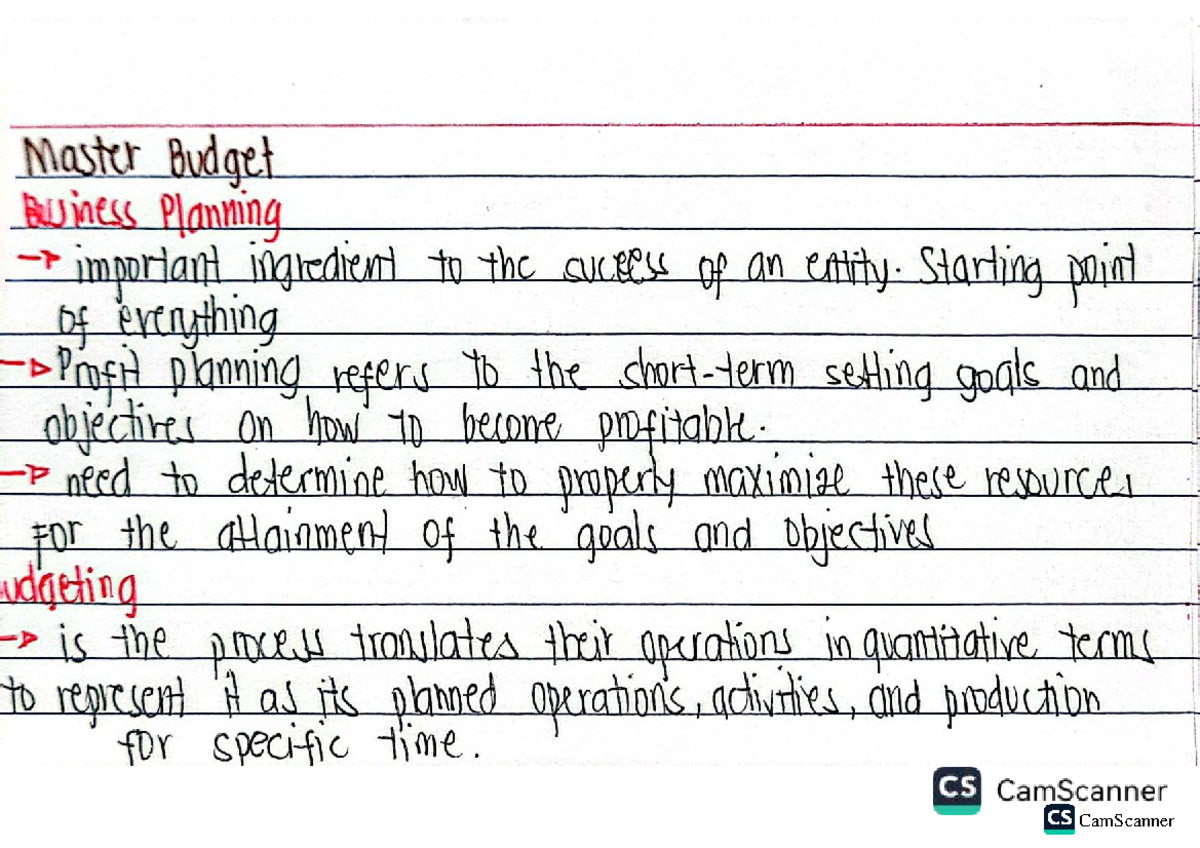 Master Budget
Business Planning
→ important ingredient to the success of an entity. Starting point
of everything
→ Profit planning refers to the short-term setting goals and
objectives on how to become profitable.
→ need to determine how to properly maximize these resources
for the attainment of the goals and objectives
udgeting
→ is the process translates their operations in quantitative terms
to represent it as its planned operations, activities, and production
for specific time.
CS CamScanner
CS CamScanner